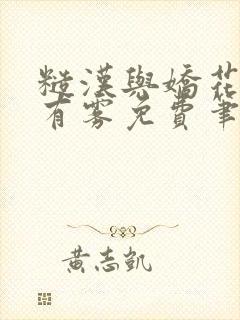 糙漢與嬌花
有雾免費筆
黃志凱